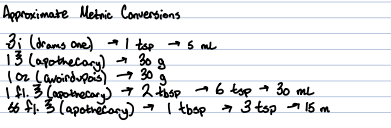 Approximate Metric Conversions
ʒ i (drams one) → 1 tsp → 5 mL
1 ℥ (apothecary) → 30 g
1 oz (avoirdupois) → 30 g
1 fl. ℥ (apothecary) → 2 tbsp → 6 tsp → 30 mL
ss fl. ℥ (apothecary) → 1 tbsp → 3 tsp → 15 m